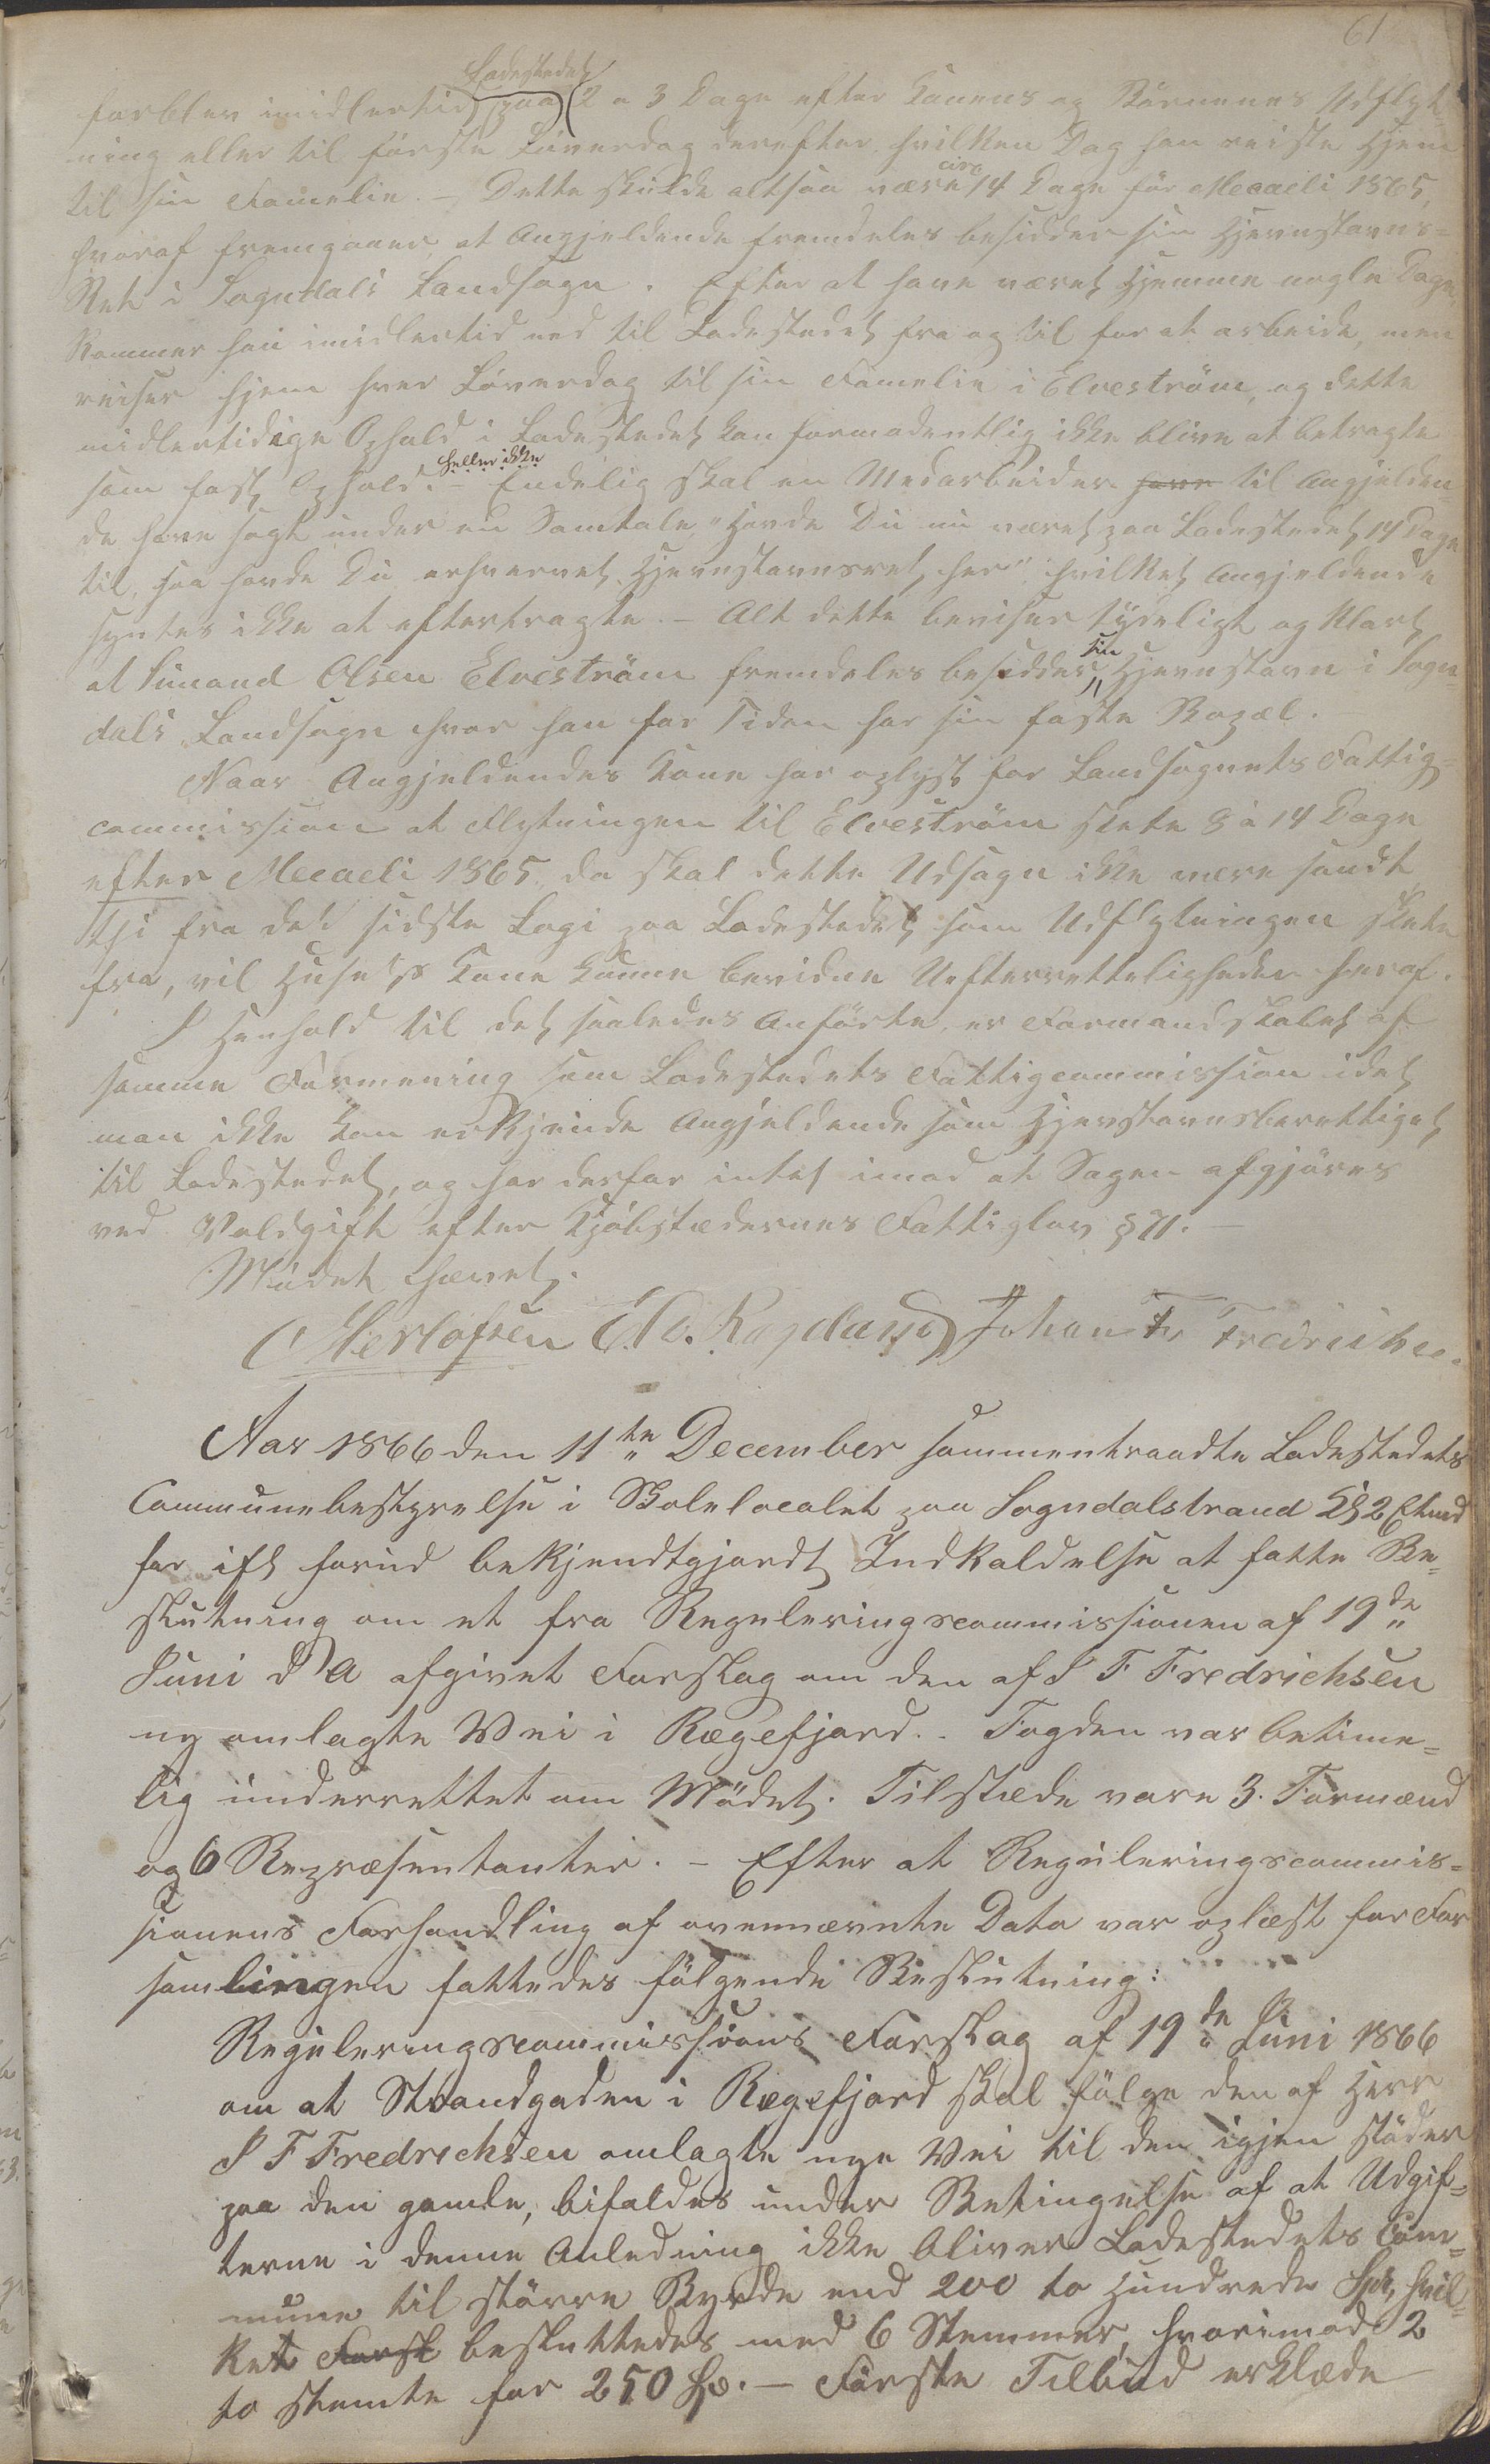 61
Ladestedet
forblev imidlertid paa 2 a 3 Dage efter Konens og Börnenes Udflyt-
ning eller til förste Löverdag derefter, hvilken Dag han reiste Hjem
til sin Famelie. - Dette skulde altsaa være circ 14 Dage för Mecaeli 1865,
hvoraf fremgaaer, at Angjeldende fremdeles besidder sin Hjemstavns=
Ret i Sogndals Landsogn. Efter at have været Hjemme nogle Dage
Kommer han imidlertid ned til Ladestedet fra og til for at arbeide, men
reiser hjem hver Löverdag til sin Famelie i Elveström, og dette
midlertidige Ophold i Ladestedet kan formodentlig ikke blive at betragte
som fast Ophold. heller ikke - Endelig skal en Medarbeider have til Angjelden
de have sagt under en Samtale, "Havde Du nu været paa Ladestedet 14 Dage
til, saa havde Du erhvervet Hjemstavnsret her" hvilket Angjeldende
syntes ikke at eftertragte. - Alt dette beviser tydeligt og klart
at Simand Olsen Elveström fremdeles besidder sin Hjemstavn i Sogn-
dals Landsogn hvor han for Tiden har sin faste Bopæl.
Naar Angjeldendes Kone har oplyst for Landsognets Fattig=
commission at Flytningen til Elveström skete 8 à 14 Dage
efter Mecaeli 1865, da skal dette Udsagn ikke være sandt
thi fra det sidste Logi paa Ladestedet som Udflytningen skete
fra, vil Husets Kone kunne bevidne Uefterretteligheden heraf.
I Henhold til det saaledes Anförte, er Formandskabet af
samme Formening som Ladestedets Fattigcommission idet
man ikke kan erkjende Angjeldende som Hjemstavnsberettiget
til Ladestedet, og har derfor intet imod at Sagen afgjöres
ved Voldgift efter Kjöbstædernes Fattiglov § 71. -
Mödet hævet.
Herlofsen Johan Fr Fredrichsen
Aar 1866 den 11te December sammentraadte Ladestedets
Communebestyrelse i Skolelocalet paa Sogndalstrand Kl 2 Efmd
for ifl forud bekjendtgjordt Indkaldelse at fatte Be=
slutning om et fra Reguleringscommissionen af 19de
Juni d A afgivet Forslag om den af I F Fredrichsen
ny omlagte Vei i Rægefjord. - Fogden var betime=
lig underrettet om Mödet. Tilstæde vare 3. Formænd
og 6 Repræsentanter. - Efter at Reguleringscommis=
sionens Forhandling af ovennævnte Dato var oplæst for For
samlingen fattedes fölgende Beslutning:
Reguleringscommissions Forslag af 19de Juni 1866
om at Strandgaden i Rægefjord skal fölge den af Herr
I F Fredrichsen omlagte nye Vei til den igjen stöder
paa den gamle, bifaldes under Betingelse af at Udgif=
terne i denne Anledning ikke bliver Ladestedets Com=
mune til större Byrde end 200 to Hundrede Spd, hvil=
ket Forsl besluttedes med 6 Stemmer, hvorimod 2
to stemte for 250 Sp. - Förste Tilbud erklæde